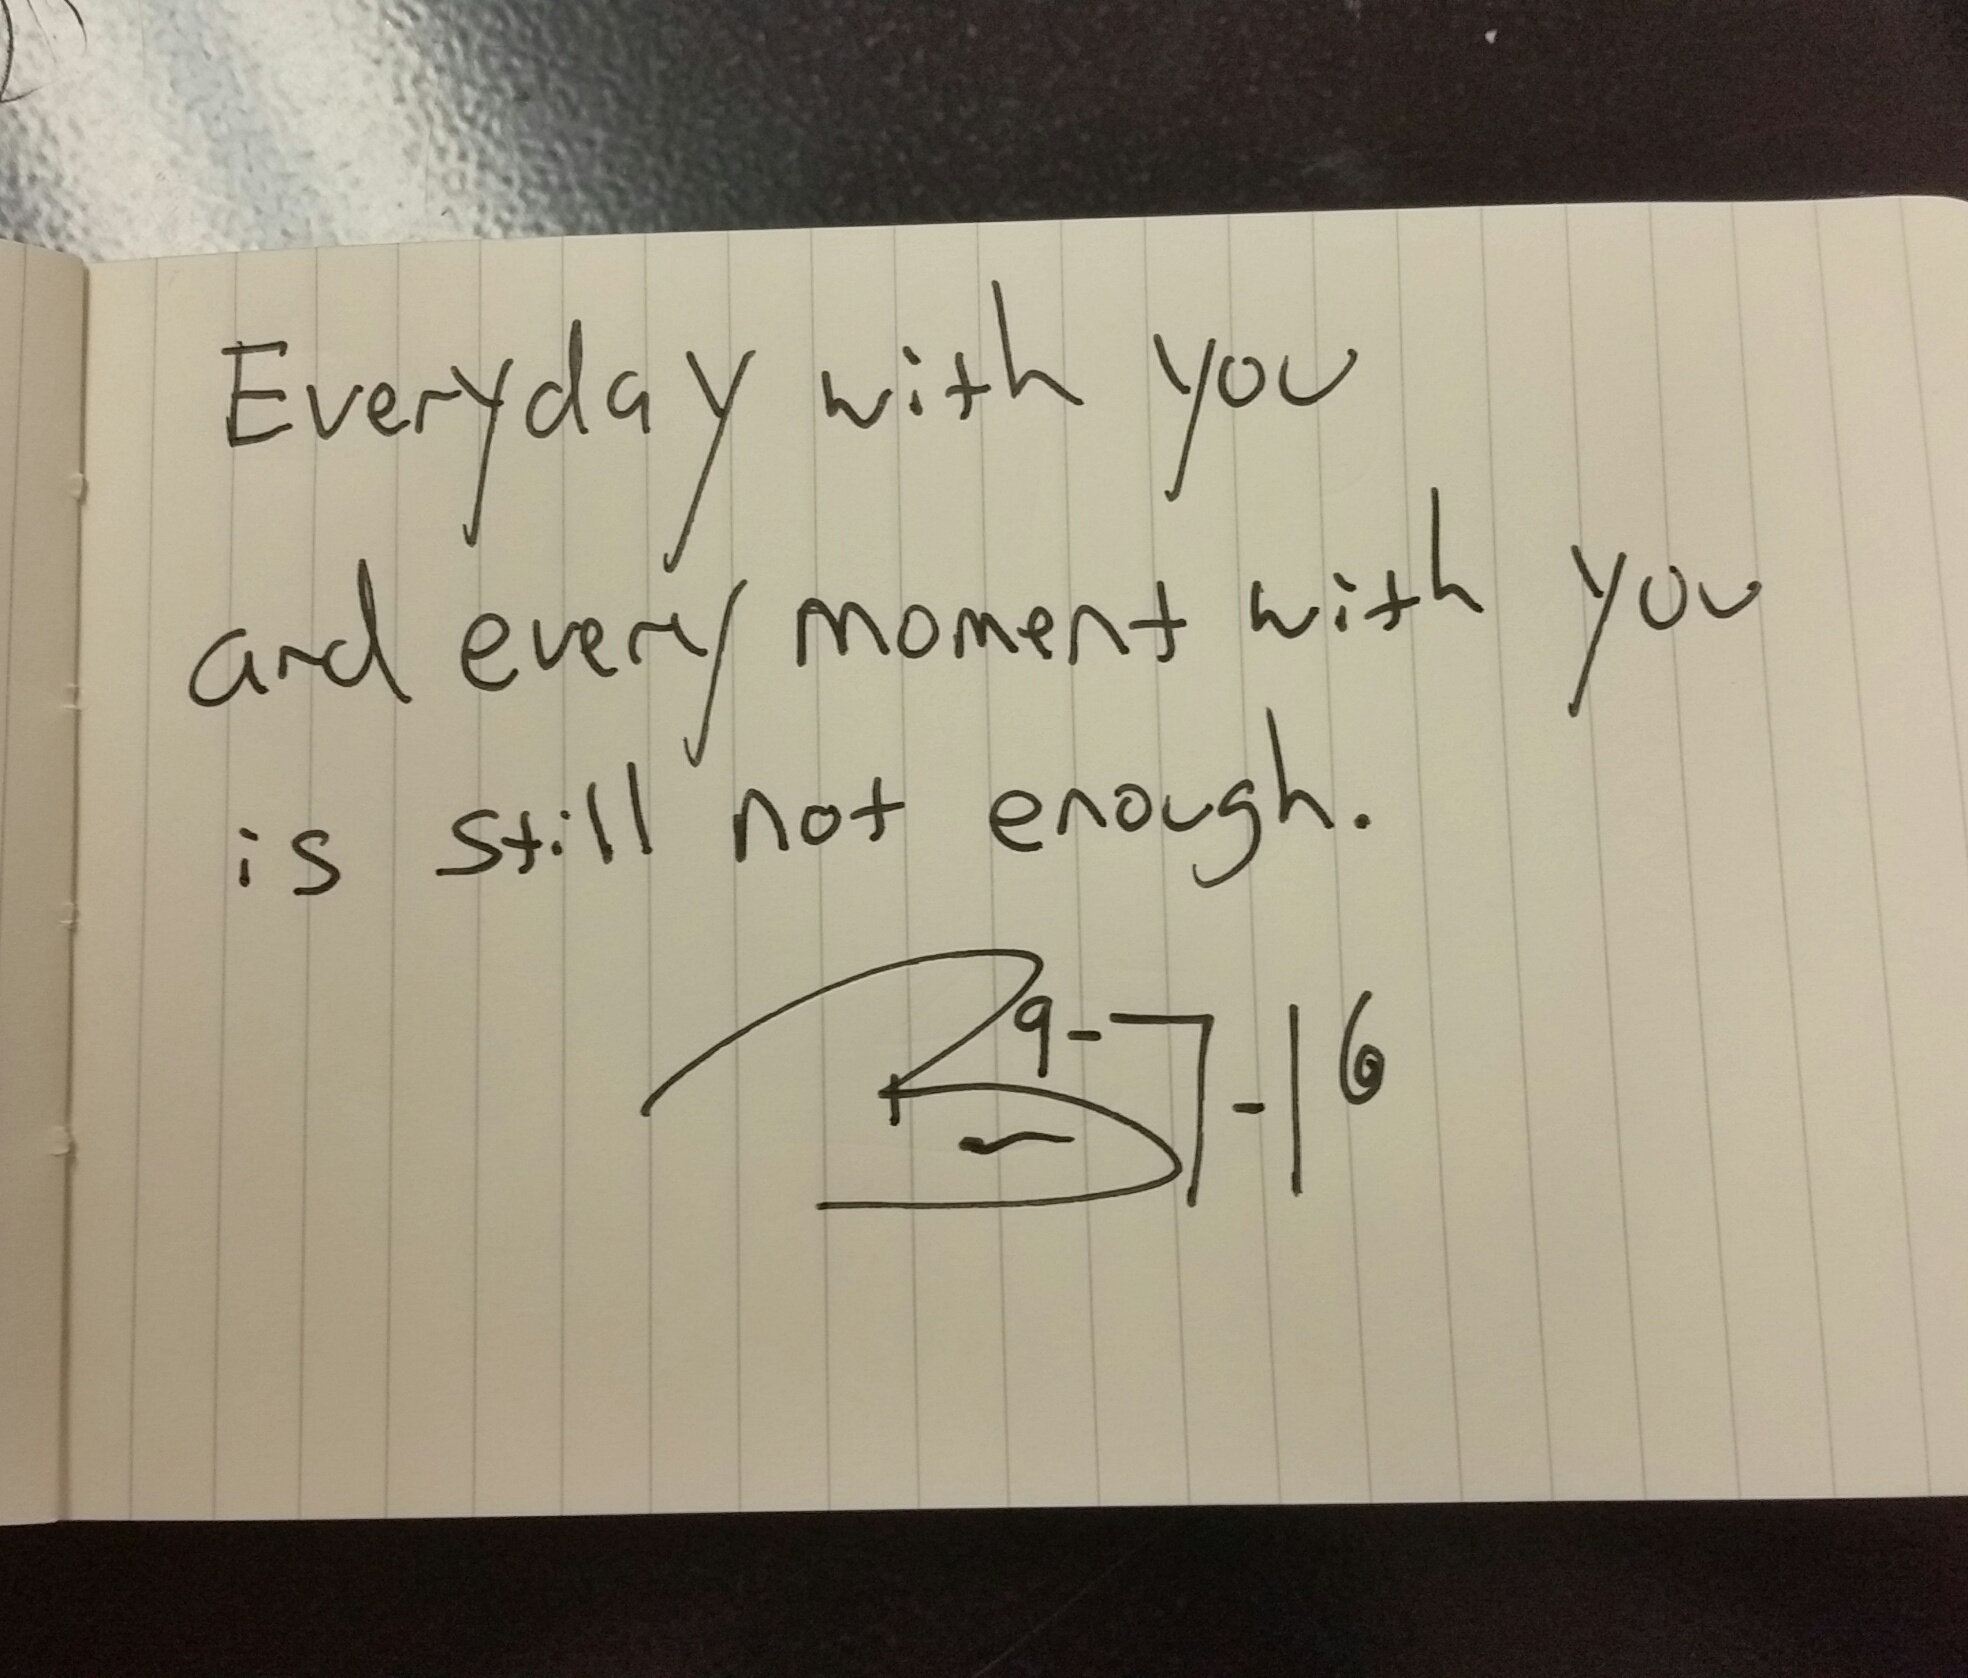 Everyday with you
and every moment with you
is still not enough.
9-7-16